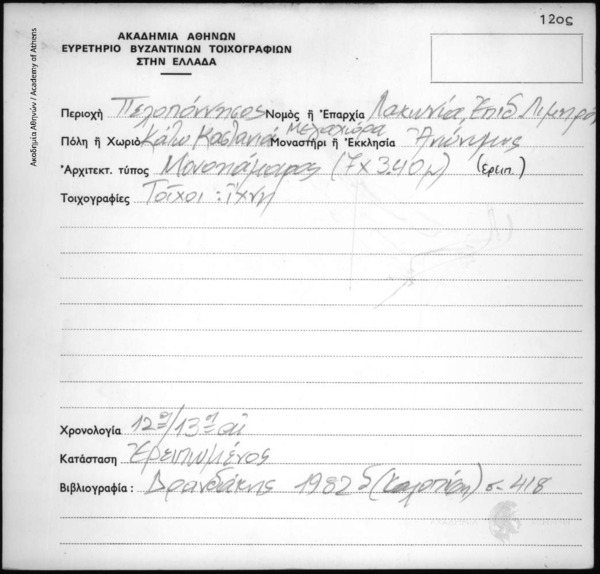 12ος
ΑΚΑΔΗΜΙΑ ΑΘΗΝΩΝ
ΕΥΡΕΤΗΡΙΟ ΒΥΖΑΝΤΙΝΩΝ ΤΟΙΧΟΓΡΑΦΙΩΝ
ΣΤΗΝ ΕΛΛΑΔΑ
Ακαδημία Αθηνών / Academy of Athens
Περιοχή Πελοπόννησος Νομός ἤ Ἐπαρχία Λακωνία, Ἐπιδ. Λιμηρά
Μεγαχώρα
Πόλη ἤ Χωριό Κάτω Καστανιά Μοναστήρι ἤ Ἐκκλησία Ἀνώνυμος
Ἀρχιτεκτ. τύπος Μονοκάμαρος (7 x 3.40 μ) (ερειπ.)
Τοιχογραφίες Τοῖχοι : ἴχνη
Χρονολογία 12ος/13ος αἰ
Κατάσταση Ἐρειπωμένος
Βιβλιογραφία : Δρανδάκης 1982 δ σ. 418